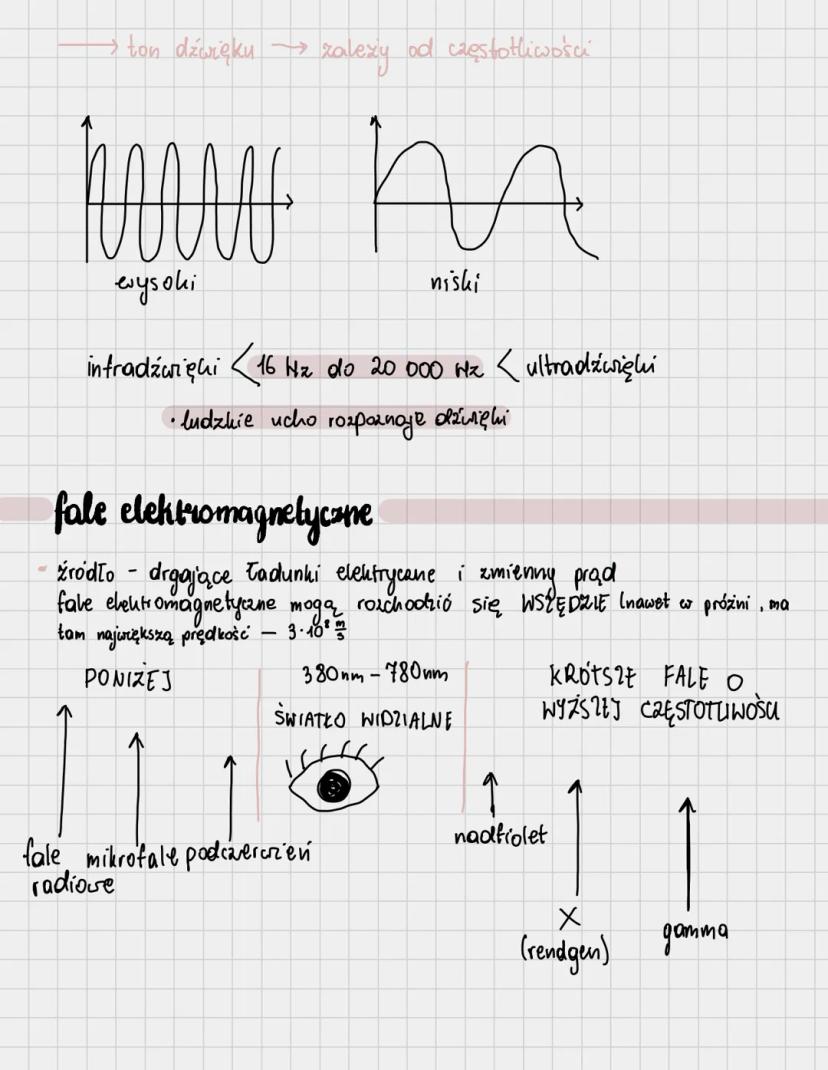 → ton dźwięku → zależy od częstotliwości
wysoki niski
infradźwięki < 16 Hz do 20 000 Hz < ultradźwięki
· ludzkie ucho rozpoznaje dźwięki
fale elektromagnetyczne
źródło - drgające ładunki elektryczne i zmienny prąd
fale elektromagnetyczne mogą rozchodzić się WSZĘDZIE (nawet w próżni, ma
tam największą prędkość — 3·10⁸ m/s
PONIŻEJ 380nm - 780nm KRÓTSZE FALE O
ŚWIATŁO WIDZIALNE WYŻSZEJ CZĘSTOTLIWOŚCI
fale mikrofale podczerwień nadfiolet
radiowe
X gamma
(rendgen)